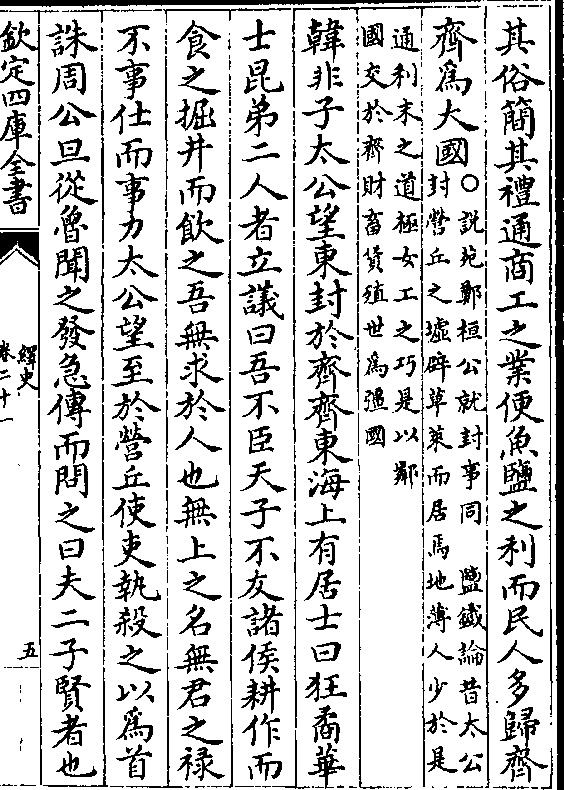 其俗簡其禮通商工之業便魚鹽之利而民人多歸齊
齊為大國○說苑鄭桓公就封事同 鹽鐵論昔太公
封營丘之墟辟草萊而居焉地薄人少於是
通利末之道極女工之巧是以鄰
國交於齊財畜貨殖世為彊國
韓非子太公望東封於齊齊東海上有居士曰狂矞華
士昆弟二人者立議曰吾不臣天子不友諸侯耕作而
食之掘井而飲之吾無求於人也無上之名無君之禄
不事仕而事力太公望至於營丘使吏執殺之以為首
誅周公旦從魯聞之發急傳而問之曰夫二子賢者也
欽定四庫全書
繹史
卷二十一
五